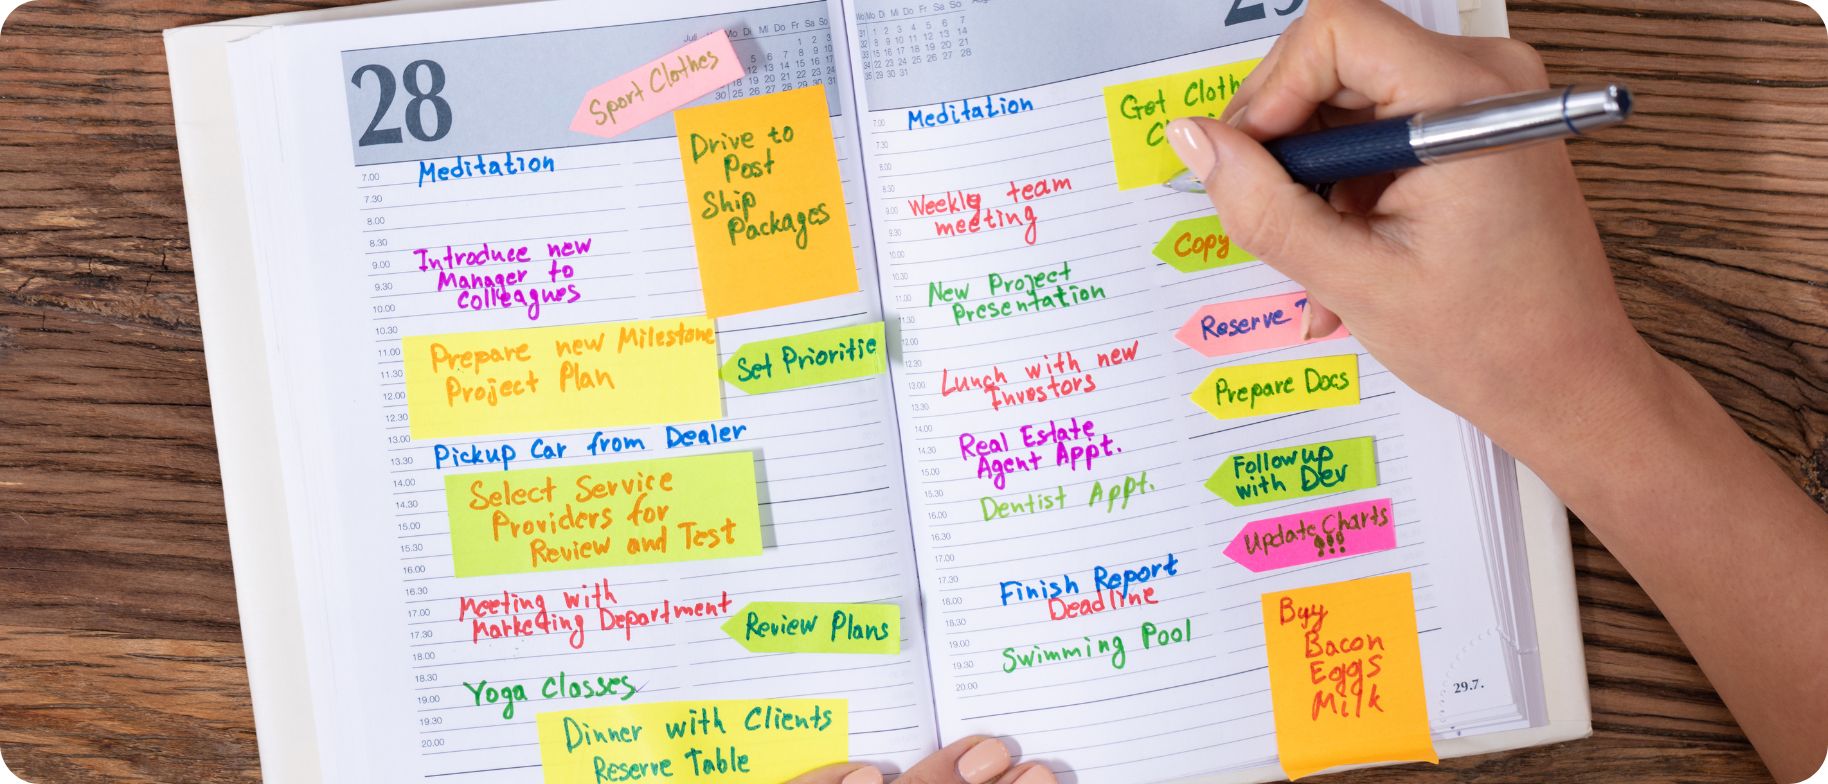 28
Juli
Mo Di Mi Do Fr Sa So
Sport Clothes
Drive to
Post
Ship
Packages
7.00
Meditation
7.30
8.00
8.30
9.00
Introduce new
9.30
Manager to
10.00
Colleagues
10.30
11.00
Prepare new Milestone
11.30
Project Plan
12.00
12.30
Set Prioritie
13.00
13.30
Pickup Car from Dealer
14.00
Select Service
14.30
Providers for
15.00
Review and Test
15.30
16.00
16.30
Meeting with
17.00
Marketing Department
17.30
Review Plans
18.00
18.30
Yoga Classes
19.00
19.30
Dinner with Clients
20.00
Reserve Table
29
Mo Di Mi Do Fr Sa So
7.00
Meditation
Get Cloth
7.30
8.00
8.30
Weekly team
9.00
meeting
9.30
Copy
10.30
New Project
11.00
Presentation
11.30
Reserve
12.00
12.30
Lunch with new
13.00
Investors
13.30
Prepare Docs
14.00
Real Estate
14.30
Agent Appt.
15.00
Follow up
with Dev
15.30
Dentist Appt.
16.00
16.30
Update Charts
!!!
17.00
17.30
Finish Report
18.00
Deadline
18.30
19.00
Swimming Pool
19.30
20.00
Buy
Bacon
Eggs
Milk
29.7.